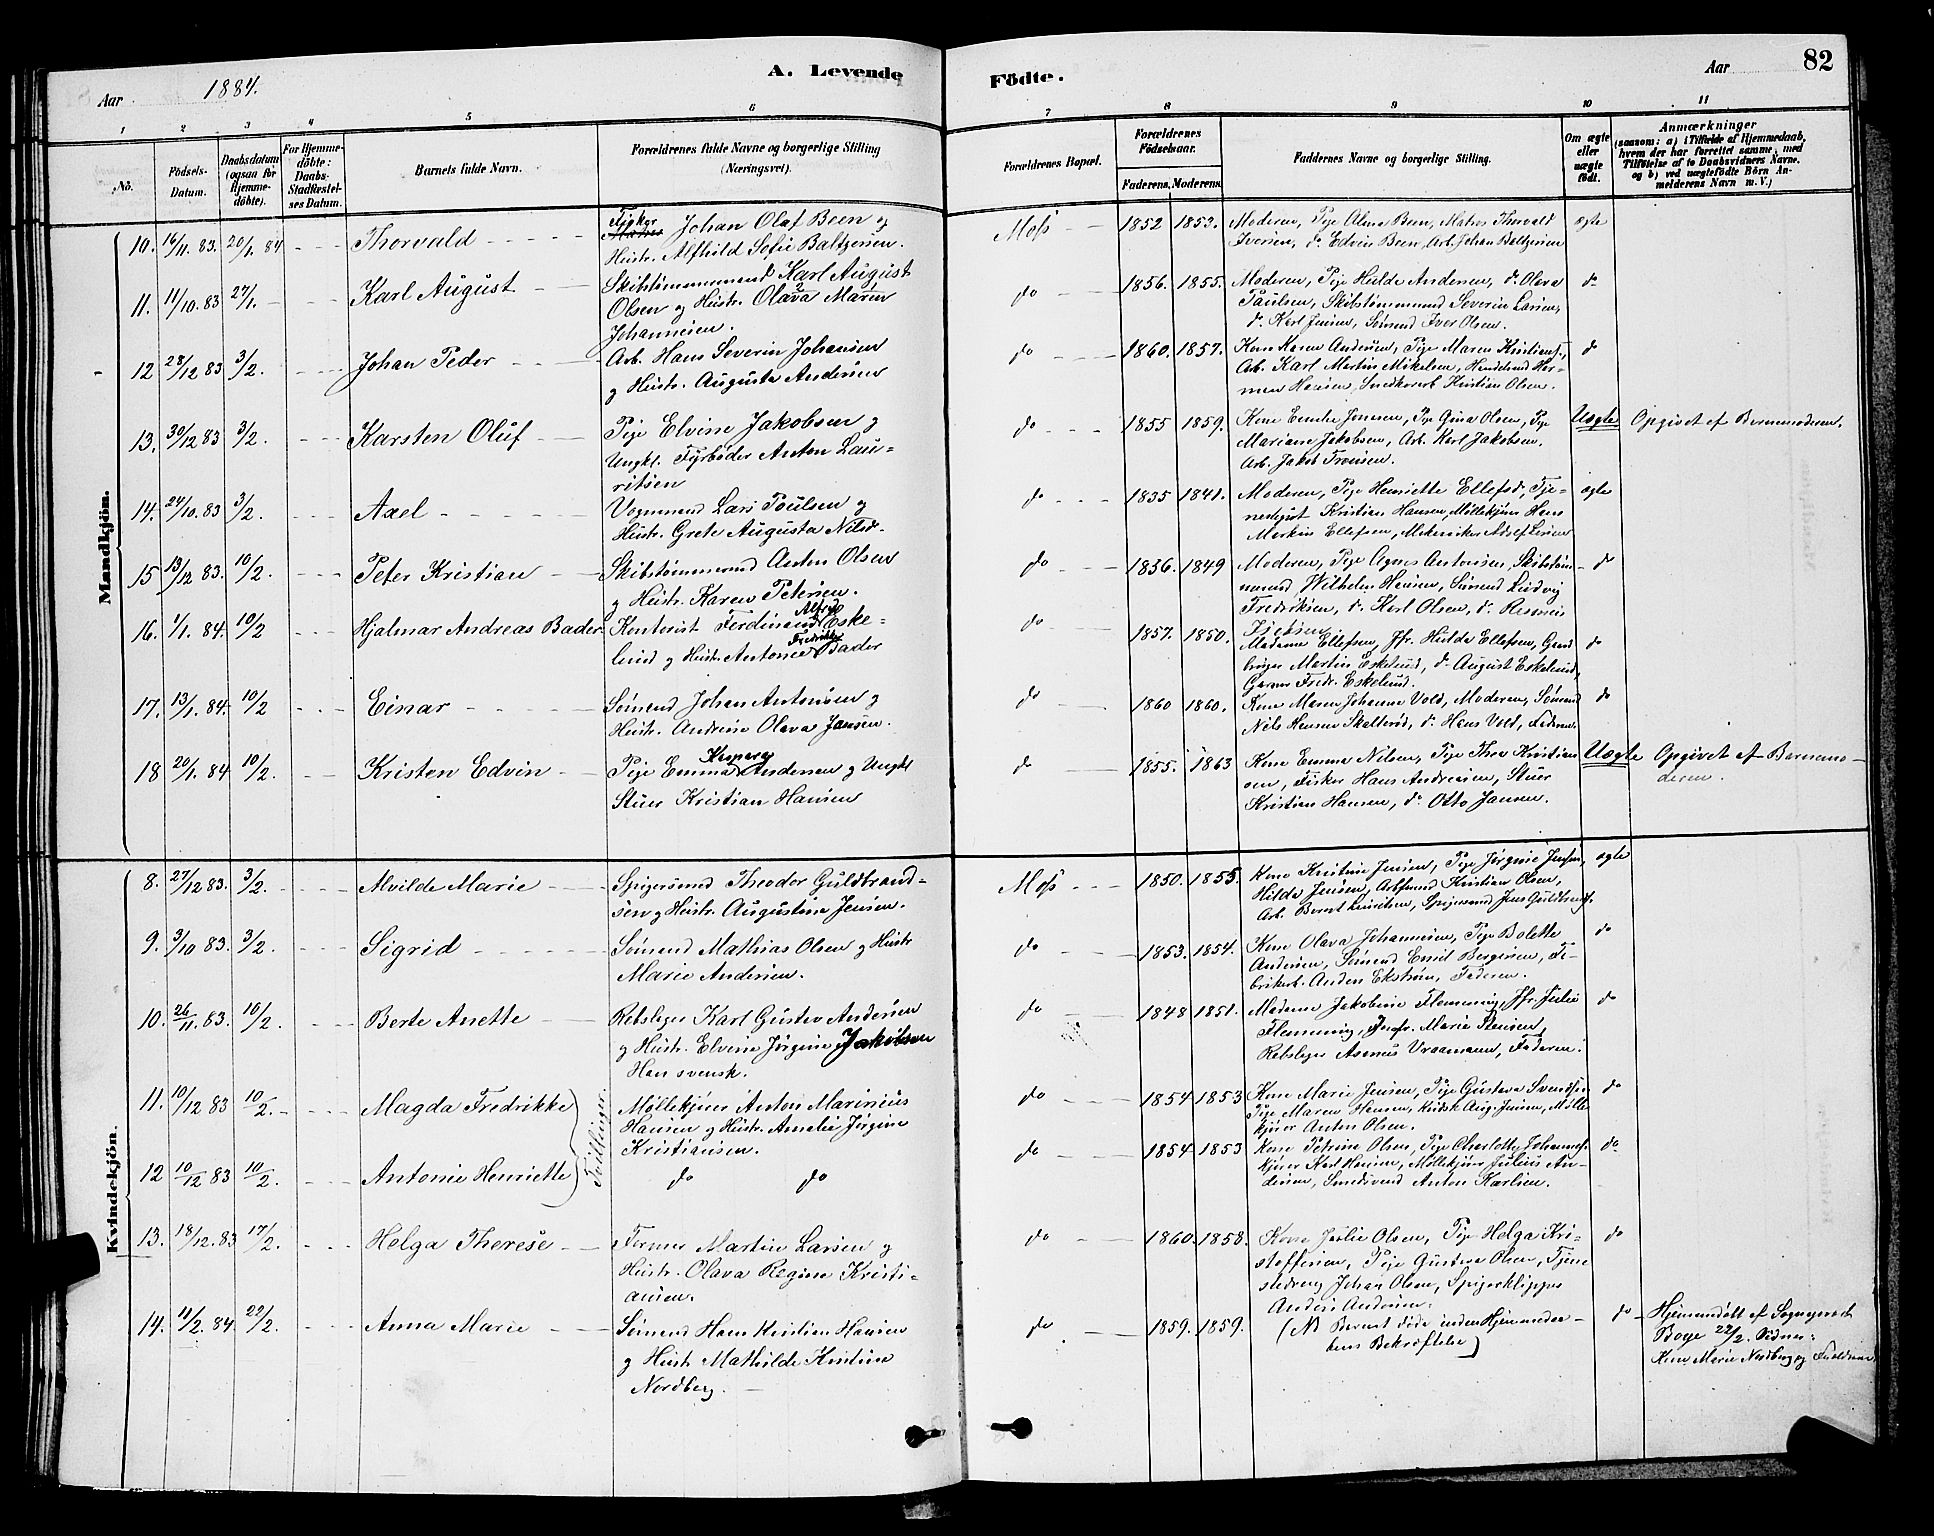 Aar 1884.
A. Levende Födte.
Aar 82
1 2 3 4 5 6 7 8 9 10 11
No.
Födsels-Datum.
Daabsdatum (ogsaa for Hjemme-döbte).
For Hjemme-döbte: Daabs-Stadfæstelses Datum.
Barnets fulde Navn.
Forældrenes fulde Navne og borgerlige Stilling (Næringsvei).
Forældrenes Bopæl.
Forældrenes Födselsaar.
Faderens. Moderens.
Faddernes Navne og borgerlige Stilling.
Om ægte eller uægte födt.
Anmærkninger
(saasom: a) i Tilfælde af Hjemmedaab, hvem der har forrettet samme, med Tilföielse af to Daabsvidners Navne. og b) ved uægtefödte Börn Anmelderens Navn m. V.)
Mandkjön.
10. 16/11 83. 20/1 84 Thorvald
Fisker Johan Olaf Been og
Hustr. Alfhild Sofie Baltzersen.
Moss 1852 1853.
Moderen, Pige Alma Been, Matros Thorvald
Iversen, do Edvin Been, Arb. Johan Baltzersen
ægte
11. 11/10. 83 27/1. Karl August
Skibstømmermand Karl August
Olsen og Hustr. Olava Marin
Johannesen.
do 1856. 1855.
Moderen, Pige Hulda Andersen, do Olava
Paulsen, Skibstømmermand Severin Larsen,
do Karl Jensen, Sømand Iver Olsen.
do
12 28/12 83 3/2. Johan Peder
Arb. Hans Severin Johansen
og Hustr. Augusta Andersen
do 1860. 1857.
Kone Karen Andersen, Pige Maren Kristians.,
Arb. Karl Martin Mikelsen, Handelsmd Her-
man Hansen, Snedkerarb Kristian Olsen.
do
13. 30/12 83 3/2. Karsten Oluf
Pige Elvine Jakobsen og
Ungkl. Fyrbøder Anton Lau-
ritsen
do 1855 1859.
Kone Emilie Jonesen, Pige Gina Olsen, Pige
Mariane Jakobsen, Arb. Karl Jakobsen,
Arb. Jakob Fransen.
Uægte Opgivet af Barnemoderen.
14. 24/10. 83 3/2. Axel
Vognmand Lars Poulsen og
Hustr. Grete Augusta Nilsd.
do 1835 1841.
Moderen, Pige Henriette Ellefsd, Tje-
nestegut Kristian Hansen, Møllekjører Hans
Markus Ellefsen, Mekaniker Adolf Larsen
ægte
15 13/12 83. 10/2. Peter Kristian
Skibstømmermd Anton Olsen
og Hustr. Karen Petersen.
do 1836. 1849
Moderen, Pige Agnes Antonsen, Skibstøm-
mermd Wilhelm Hansen, Sømand Ludvig
Fredriksen, do Karl Olsen, do Rasmus
do
16. 1/1. 84. 10/2 Hjalmar Andreas Bader
Kontorist Ferdinand Alfred Eske-
lund og Hustr. Antonie Fredrikke Bader
do 1857. 1850.
Madame Ellefsen, Jfr. Hulda Ellefsen,
Martin Eskelund, do August Eskelund,
Garver Fredr. Eskelund.
do
17. 13/1. 84. 10/2 Einar
Sømand Johan Antonsen og
Hustr. Andrine Olava Jansen.
do 1860 1860.
Kone Maren Johanne Vold, Moderen, Sømand
Nils Hansen Skallerød, do Hans Vold, Faderen.
do
18 20/1. 84 10/2. Kristen Edvin
Pige Emma Kasperg Andersen og Ungkl
Stuer Kristian Hansen
do 1855. 1863
Kone Emma Nilsen, Pige Thea Kristian
sen, Fisker Hans Andreasen, Stuer
Kristian Hansen, do Otto Jansen.
Uægte Opgivet af Barnemo-
deren.
Kvindekjön.
8. 27/12 83. 3/2. Alvilde Marie
Spigersmed Theodor Guldbrand-
sen og Hustr. Augustine Jensen.
Moss 1850. 1855.
Kone Kristine Jensen, Pige Jørgine Jensen,
Hilda Jensen, Arbmand Kristian Olsen,
Arb. Bernt Lauritsen, Spigersmd Jens Guldbrands.
ægte
9. 3/10 83. 3/2. Sigrid
Sømand Mathias Olsen og Hustr
Marie Andersen.
do 1853. 1854.
Kone Olava Johannesen, Pige Bolette
Andersen, Sømand Emil Bergersen, Fa-
brikarb. Anders Ekstrøm, Faderen.
do
10. 26/11. 83. 10/2. Berte Anette
Rebslager Karl Gustav Andersen
og Hustr. Elvine Jørgine Jakobsen
Han svensk.
do 1848 1851.
Madame Jakobine Flemming, Jfr. Julie
Flemming, Jnfr. Marie Stensen,
Rebslager Asmus Vraamann, Faderen.
do
11. 10/12 83 10/2. Magda Fredrikke
Tvillinger
Møllekjører Anton Marinius
Hansen og Hustr. Amalie Jørgine
Kristiansen.
do 1854 1853
Kone Marie Jensen, Pige Gustava Svendsen
Pige Maren Hansen, Kudsk Aug. Jensen, Mølle-
kjører Anton Olsen.
do
12 10/12 83 10/2. Antonie Henriette
do do
do 1854 1853
Kone Petrine Olsen, Pige Charlotte Johannes.
kjører Karl Hansen, Møllekjører Julius An-
dersen, Smedsvend Anton Karlsen.
do
13. 18/12. 83 17/2. Helga Therese
Former Martin Larsen og
Hustr. Olava Regine Kristi-
ansen.
do 1860. 1858.
Kone Julie Olsen, Pige Helga Kri-
stoffersen, Pige Gustava Olsen, Tjene
stedreng Johan Olsen, Spigerklipper
Anders Andersen.
do
14. 11/2. 84. 22/2. Anna Marie
Sømand Hans Kristian Hansen
og Hustr Mathilde Kristine
Nordberg.
do 1859. 1859.
(NB Barnet døde inden Hjemmedaa-
bens Bekræftelse)
do Hjemmedøbt af Sogneprest
Boye 22/2. Vidner:
Kone Marie Nordberg og Faderen